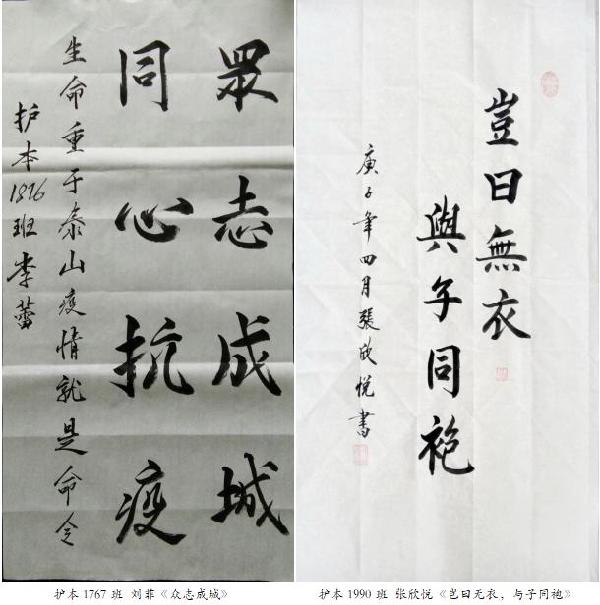 眾志成城
同心抗疫
生命重于泰山疫情就是命令
护本1876班李蕾
豈曰無衣
與子同袍
庚子年四月張欣悦書
护本 1767 班 刘菲《众志成城》
护本 1990 班 张欣悦《岂曰无衣，与子同袍》